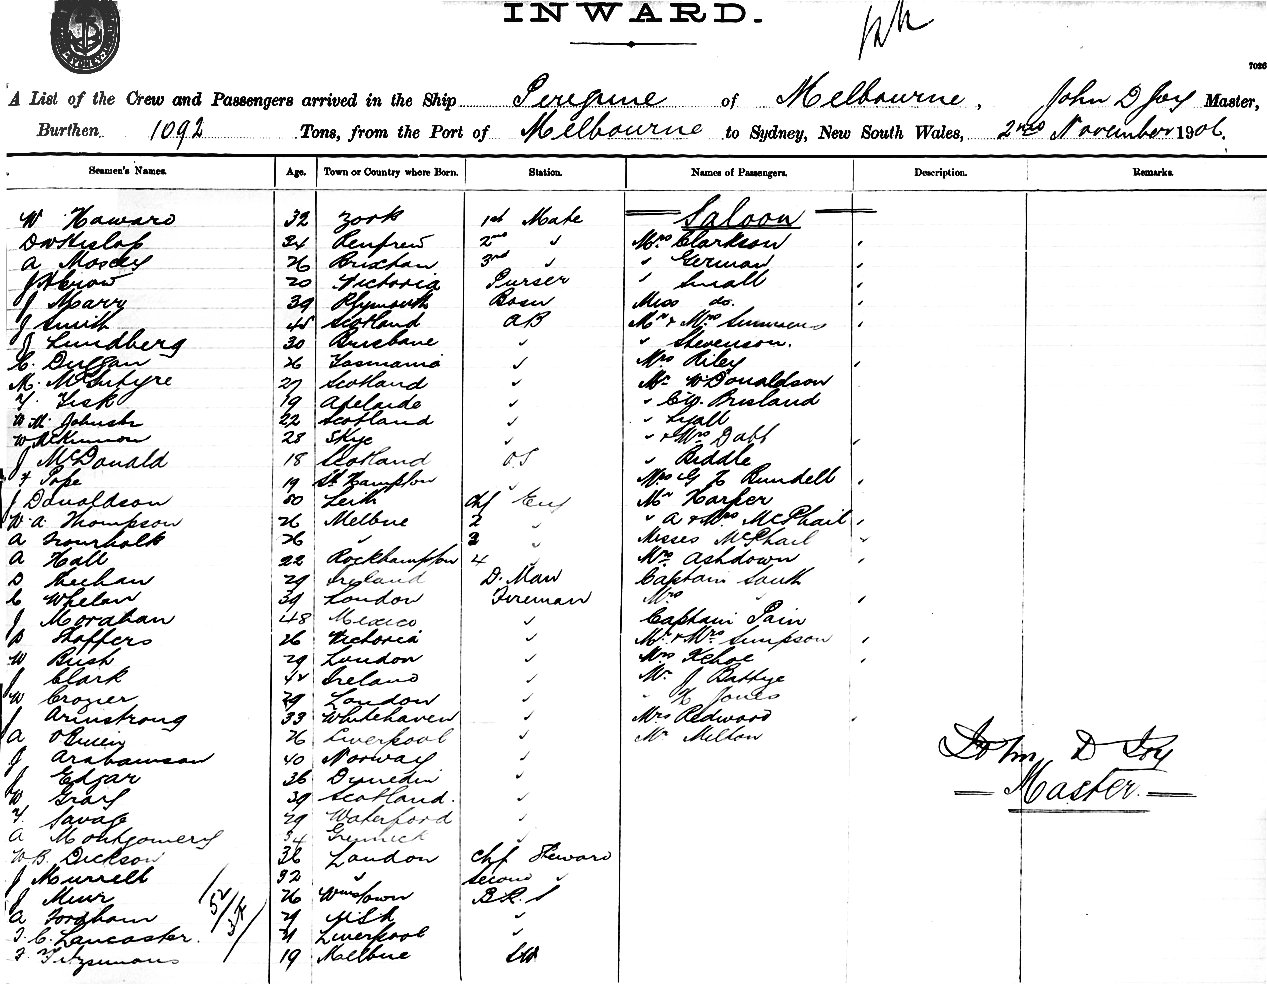 INWARD.
7026
A List of the Crew and Passengers arrived in the Ship Peregrine of Melbourne, John D Joy Master,
Burthen 1092 Tons, from the Port of Melbourne to Sydney, New South Wales, 2nd November 1906.
Seamen's Names. Age. Town or Country where Born. Station. Names of Passengers. Description. Remarks.
W Haward 32 York 1st Mate Saloon
D W Hislop 34 Renfrew 2nd " Mrs Clarkson
A Moseley 26 Brixton 3rd " " German
20 Victoria Purser " Small
J Marry 39 Plymouth Bosn Miss do.
J Smith 45 Scotland AB Mr & Mrs Simmons
J Lundberg 30 Brisbane " " Stevenson.
C. Duggan 26 Tasmania " Mrs Riley
M. McIntyre 27 Scotland " Mr W Donaldson
F. Fisk 19 Adelaide " " Brisland
W M Johnston 22 Scotland " " Lyall
W McKinnon 28 Skye " " & Mrs Dabb
J McDonald 18 Scotland OS " Biddle
F Pope 19 St Hampton " Mrs G F Rundell
J Donaldson 50 Leith Chf Eng Mr Harper
W. A. Thompson 26 Melbne 2 " " A & Mrs McPhail
A 26 " 3 " Misses McPhail
A Hall 22 Rockhampton 4 " Mrs Ashdown
D Meehan 29 Ireland D. Man Captain South
C Whelan 39 London Fireman Mrs "
J Morahan 48 Mexico " Captain Pain
B Stoffers 26 Victoria " Mr & Mrs Simpson
W Bush 29 London " Mrs Kehoe
J Clark 42 Ireland " Mr J Battye
W Crozier 29 London " " H Jones
J Armstrong 33 Whitehaven " Mrs Redward
A O'Brien 26 Liverpool " Mr Milton
J Arahamson 40 Norway "
J Edgar 36 Dunedin "
W Gray 39 Scotland. "
F. Savage 29 Waterford "
A Montgomery 34 Greenock "
W. B. Dickson 36 London Chf Steward
J Murrell 32 " Second "
J Muir 26 Wmstown B.R.S
A Fordham 29 "
F. C. Lancaster. 21 Liverpool "
F Fitzsimons 19 Melbne SW
John D Joy
Master.
52